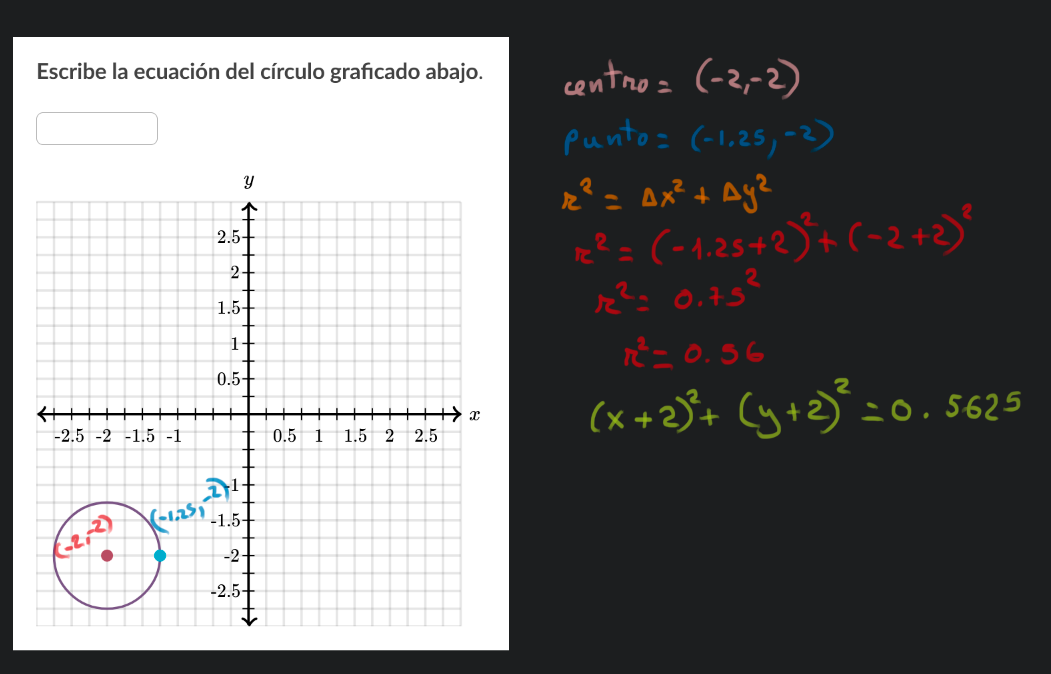 Escribe la ecuación del círculo graficado abajo.
y
2.5
2
1.5
1
0.5
x
-2.5 -2 -1.5 -1 0.5 1 1.5 2 2.5
-1
-1.5
-2
-2.5
(-2,-2)
(-1.25,-2)
centro = (-2,-2)
punto = (-1.25,-2)
r² = Δx² + Δy²
r² = (-1.25+2)² + (-2+2)²
r² = 0.75²
r² = 0.56
(x+2)² + (y+2)² = 0.5625